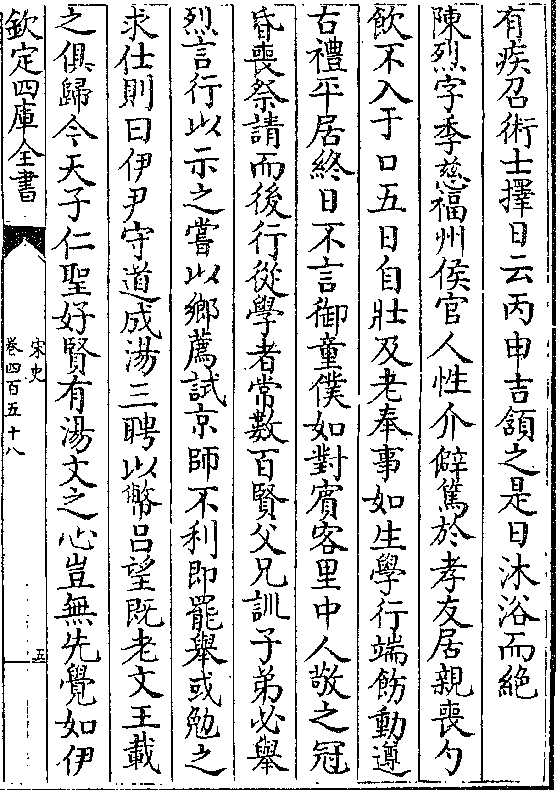 有疾召術士擇日云丙申吉頷之是日沐浴而絶
陳烈字季慈福州侯官人性介僻篤於孝友居親喪勺
飲不入于口五日自壯及老奉事如生學行端飭動遵
古禮平居終日不言御童僕如對賓客里中人敬之冠
昏喪祭請而後行從學者常數百賢父兄訓子弟必舉
烈言行以示之嘗以鄉薦試京師不利即罷舉或勉之
求仕則曰伊尹守道成湯三聘以幣呂望既老文王載
之俱歸今天子仁聖好賢有湯文之心豈無先覺如伊
欽定四庫全書
宋史
卷四百五十八
五